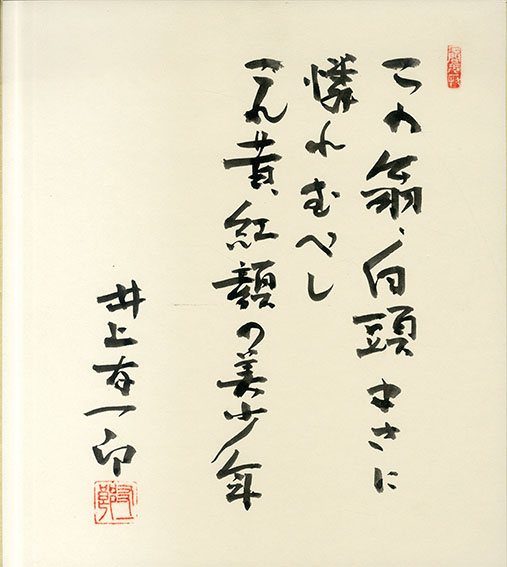 この翁、白頭まさに
憐れむべし
これ昔、紅顔の美少年
井上有一印